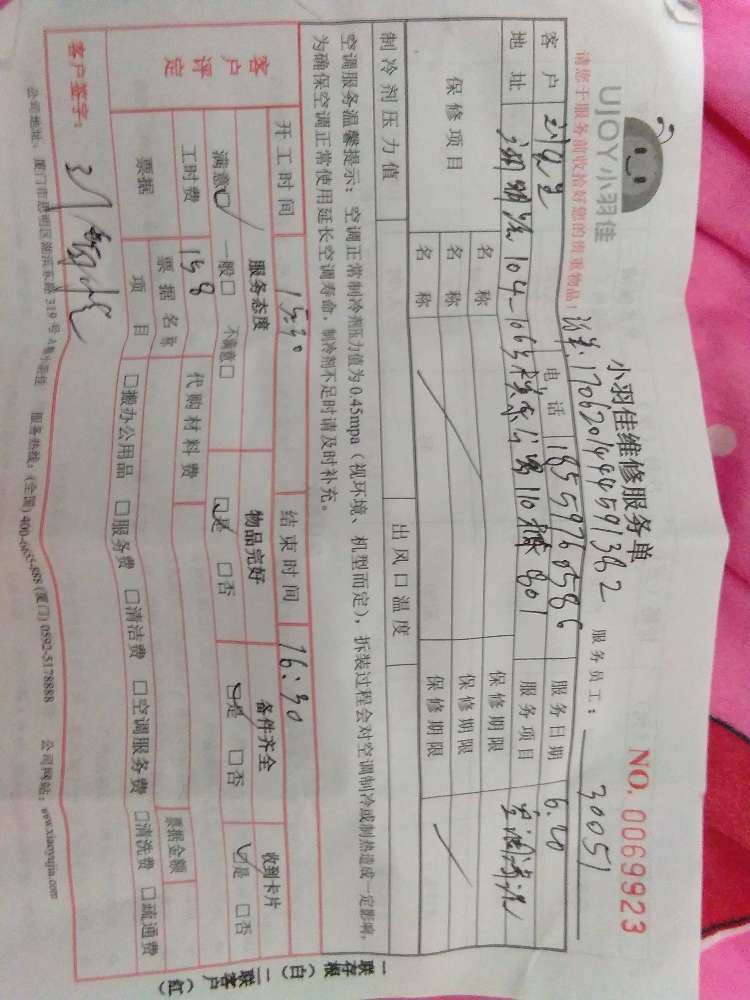 UJOY小羽佳
小羽佳维修服务单
NO. 0069923
请您于服务前收拾好您的贵重物品!
1706201444591362
服务员工: 30051
客户 电话 18559260586 服务日期 6.20
地址 104-106号 110 801 服务项目 空调清洗
保修项目 名称 保修期限
名称 保修期限
名称 保修期限
制冷剂压力值 出风口温度
空调服务温馨提示: 空调正常制冷剂压力值为0.45mpa(视环境、机型而定), 拆装过程会对空调制冷或制热造成一定影响,
为确保空调正常使用延长空调寿命, 制冷剂不足时请及时补充。
开工时间 15:30 结束时间 16:30
客户评定 服务态度 物品完好 备件齐全 收到卡片
满意☑ 一般□ 不满意□ ☑是 □否 ☑是 □否 ☑是 □否
工时费 158 代购材料费
票据 票据名称 票据金额
项目 □搬办公用品 □服务费 □清洁费 □空调服务费 □清洗费 □疏通费
客户签字:
公司地址: 厦门市思明区湖滨东路319号 服务热线: (全国) 400-0655-888 (厦门) 0592-5178888 公司网站: www.xiaoyujia.com
一联存根(白) 二联客户(红)